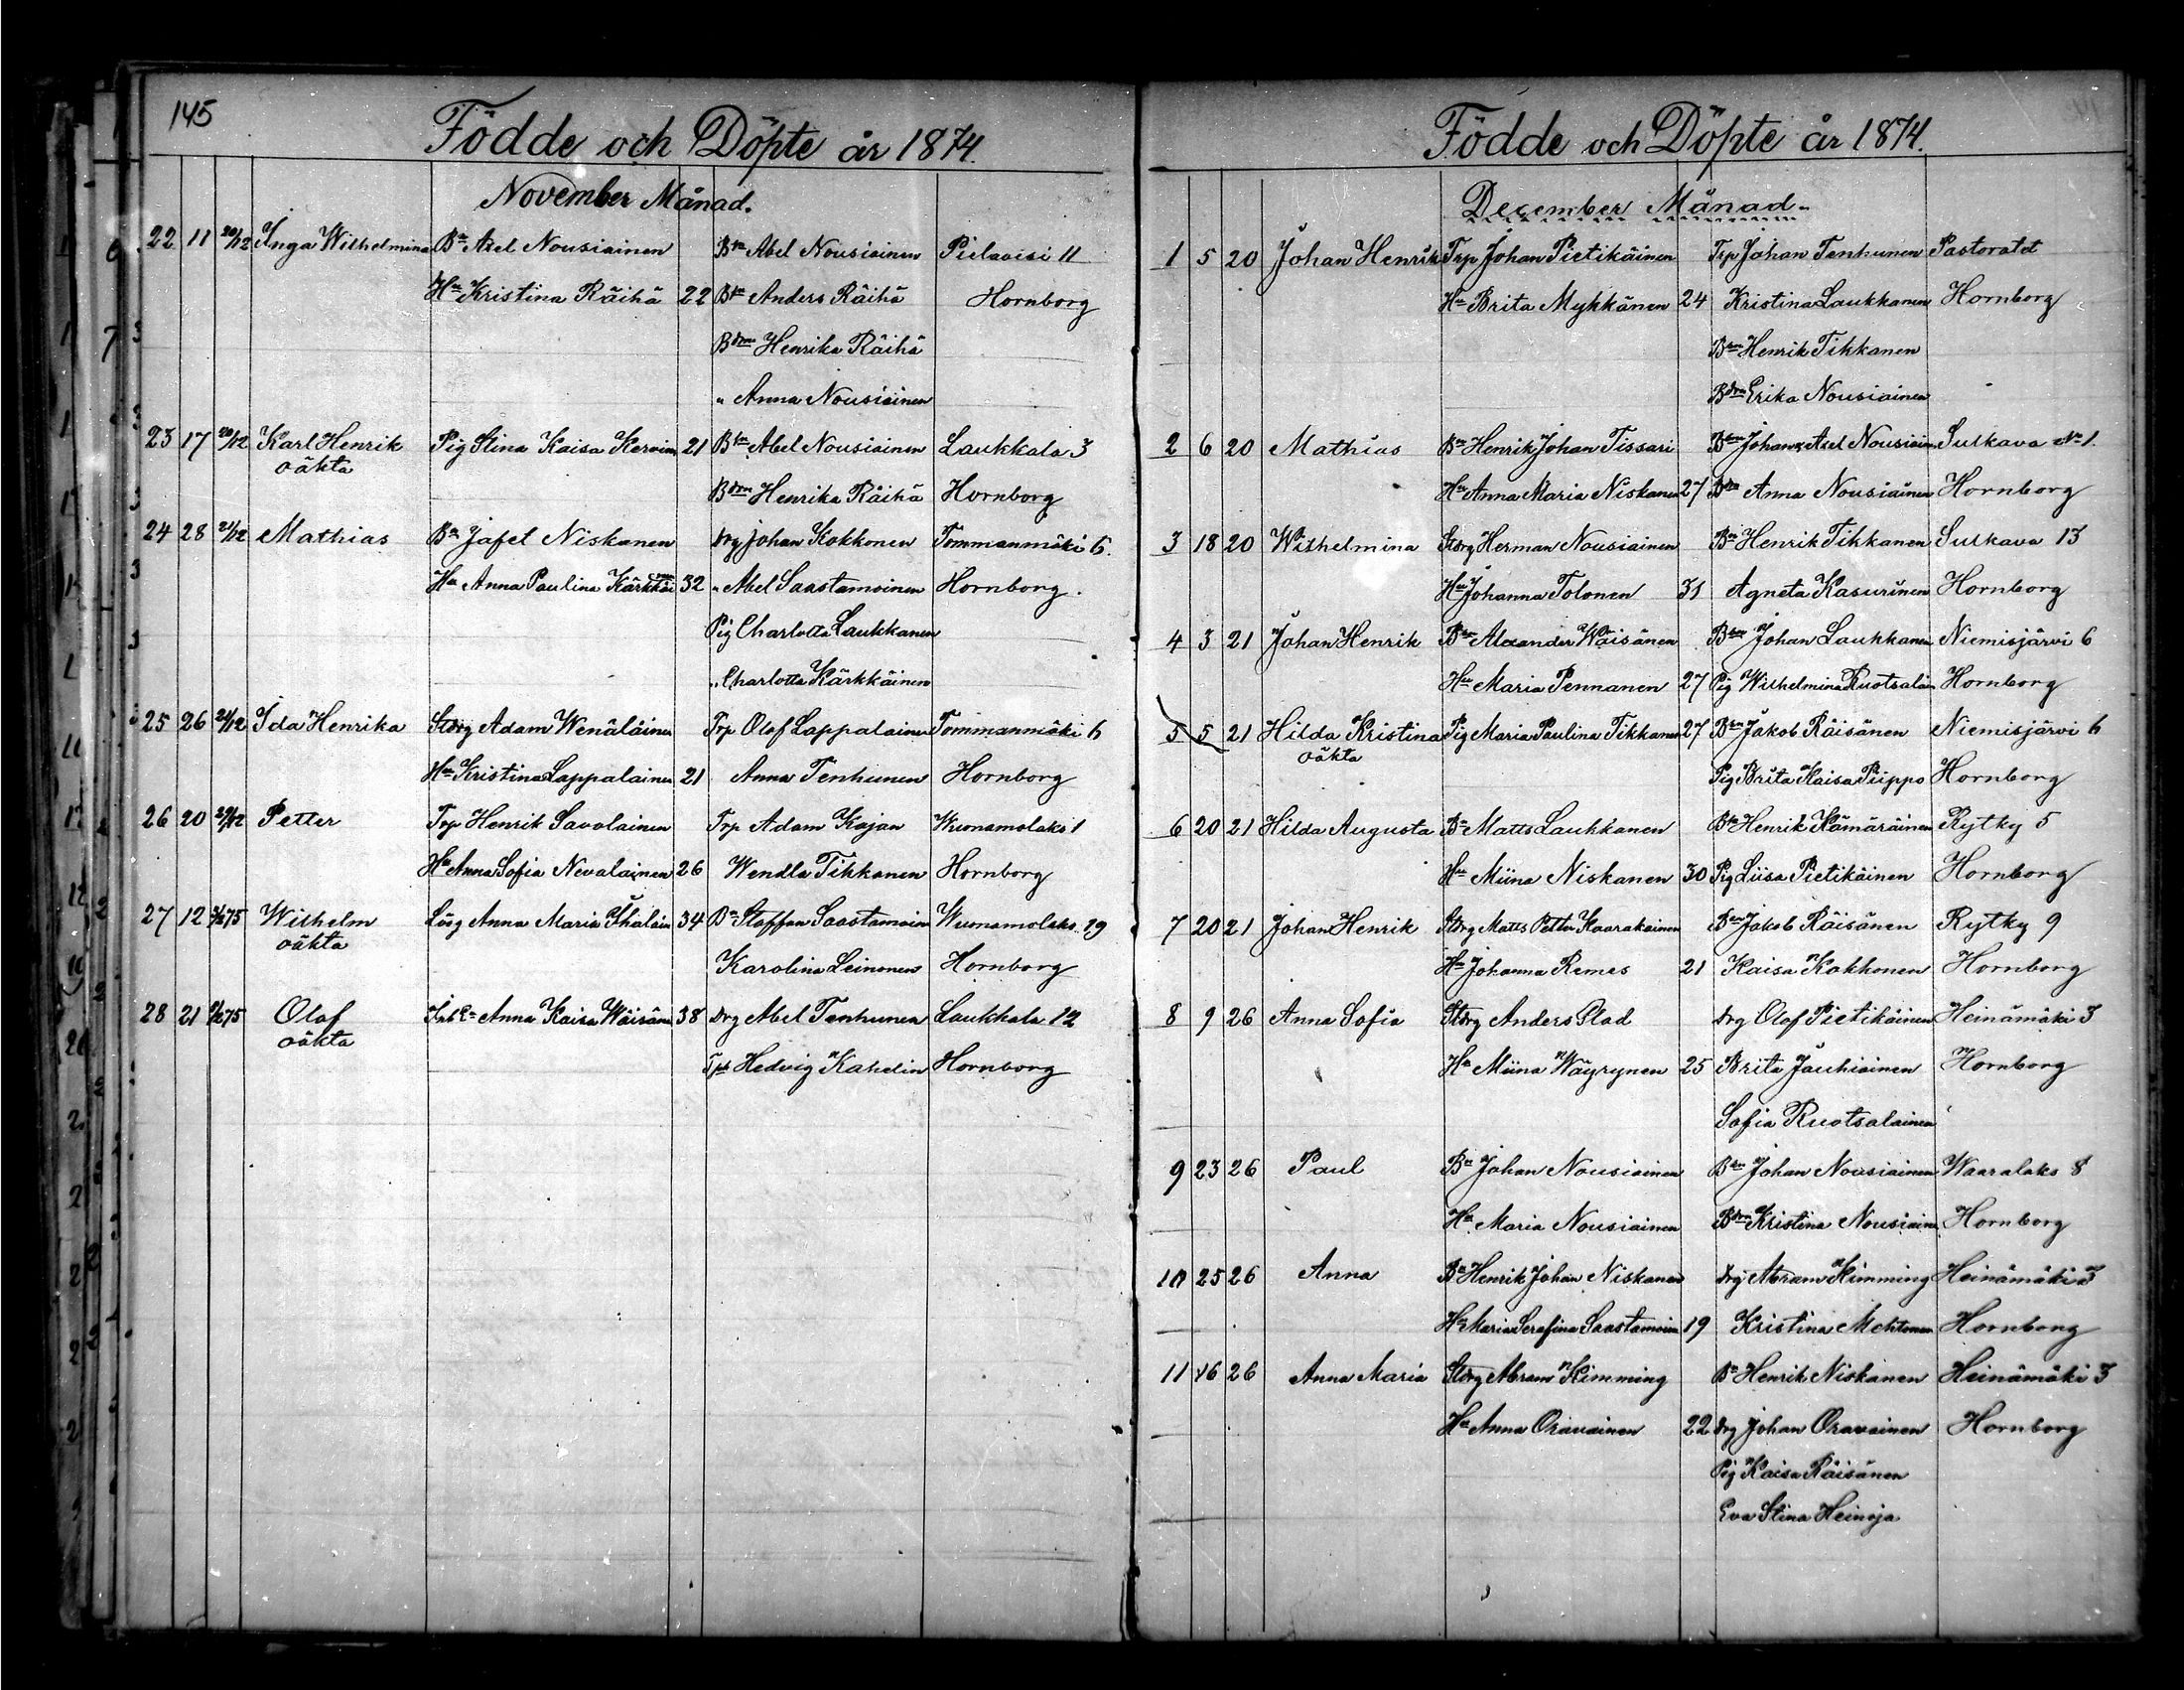 145
Födde och Döpte år 1874.
November Månad.
22 11 20/12 Inga Wilhelmina Bn Axel Nousiainen Bn Abel Nousiainen Pielavesi 11
Hu Kristina Räihä 22 Bn Anders Räihä Hornborg
Bdrn Henrika Räihä
" Anna Nousiainen
23 17 20/12 Karl Henrik Pig Stina Kaisa Kervin 21 Bn Abel Nousiainen Laukkala 3
oäkta Bdrn Henrika Räihä Hornborg
24 28 21/12 Mathias Bn Jafet Niskanen Drg Johan Kokkonen Tommanmäki 6.
Hu Anna Paulina Kärkkäinen 32 " Abel Saastamoinen Hornborg.
Pig Charlotta Laukkanen
" Charlotta Kärkkäinen
25 26 21/12 Ida Henrika Stdrg Adam Wenäläinen Trp Olof Lappalainen Tommanmäki 6
Hu Kristina Lappalainen 21 Anna Tenhunen Hornborg
26 20 Petter Trp Henrik Savolainen Trp Adam Kajan Wuonamolaks 1
Hu Anna Sofia Nevalainen 26 Wendla Tikkanen Hornborg
27 12 Wilhelm Anna Maria 34 Bn Staffan Saastamoin Wuonamolaks 19
oäkta Karolina Leinonen Hornborg
28 21 Olof Anna Kaisa Wäisän 38 Drg Abel Tenhunen Laukkala 12
oäkta Hedvig Kahelin Hornborg
Födde och Döpte år 1874.
December Månad.
1 5 20 Johan Henrik Trp Johan Pietikäinen Trp Johan Tenhunen Pastoratet
Hu Brita Mykkänen 24 Kristina Laukkanen Hornborg
Bn Henrik Tikkanen
Bdrn Erika Nousiainen
2 6 20 Mathias Bn Henrik Johan Tissari Bn Johan Axel Nousiain Sulkava No 1.
Hu Anna Maria Niskanen 27 Anna Nousiainen Hornborg
3 18 20 Wilhelmina Stdrg Herman Nousiainen Bn Henrik Tikkanen Sulkava 13
Hu Johanna Tolonen 31 Agneta Kasurinen Hornborg
4 3 21 Johan Henrik Bn Alexander Wäisänen Bn Johan Laukkanen Niemisjärvi 6
Hu Maria Pennanen 27 Pig Wilhelmina Ruotsalain Hornborg
5 5 21 Hilda Kristina Pig Maria Paulina Tikkanen 27 Bn Jakob Räisänen Niemisjärvi 6
oäkta Pig Brita Kaisa Piippo Hornborg
6 20 21 Hilda Augusta Bn Matts Laukkanen Bn Henrik Hämäräinen Rytky 5
Hu Miina Niskanen 30 Pig Liisa Pietikäinen Hornborg
7 20 21 Johan Henrik Stdrg Matts Petter Kaarakainen Bn Jakob Räisänen Rytky 9
Hu Johanna Remes 21 Kaisa Kokkonen Hornborg
8 9 26 Anna Sofia Stdrg Anders Glad Drg Olof Pietikäinen Heinämäki 3
Hu Miina Wäyrynen 25 Brita Jauhiainen Hornborg
Sofia Ruotsalainen
9 23 26 Paul Bn Johan Nousiainen Bn Johan Nousiainen Waaralaks 8
Hu Maria Nousiainen Bdrn Kristina Nousiainen Hornborg
10 25 26 Anna Bn Henrik Johan Niskanen Drg Abram Kimming Heinämäki 3
Hu Maria Serafina Saastamoin 19 Kristina Mehtonen Hornborg
11 16 26 Anna Maria Stdrg Abram Kimming Bn Henrik Niskanen Heinämäki 3
Hu Anna Oravainen 22 Drg Johan Oravainen Hornborg
Pig Kaisa Räisänen
Eva Stina Heinoja